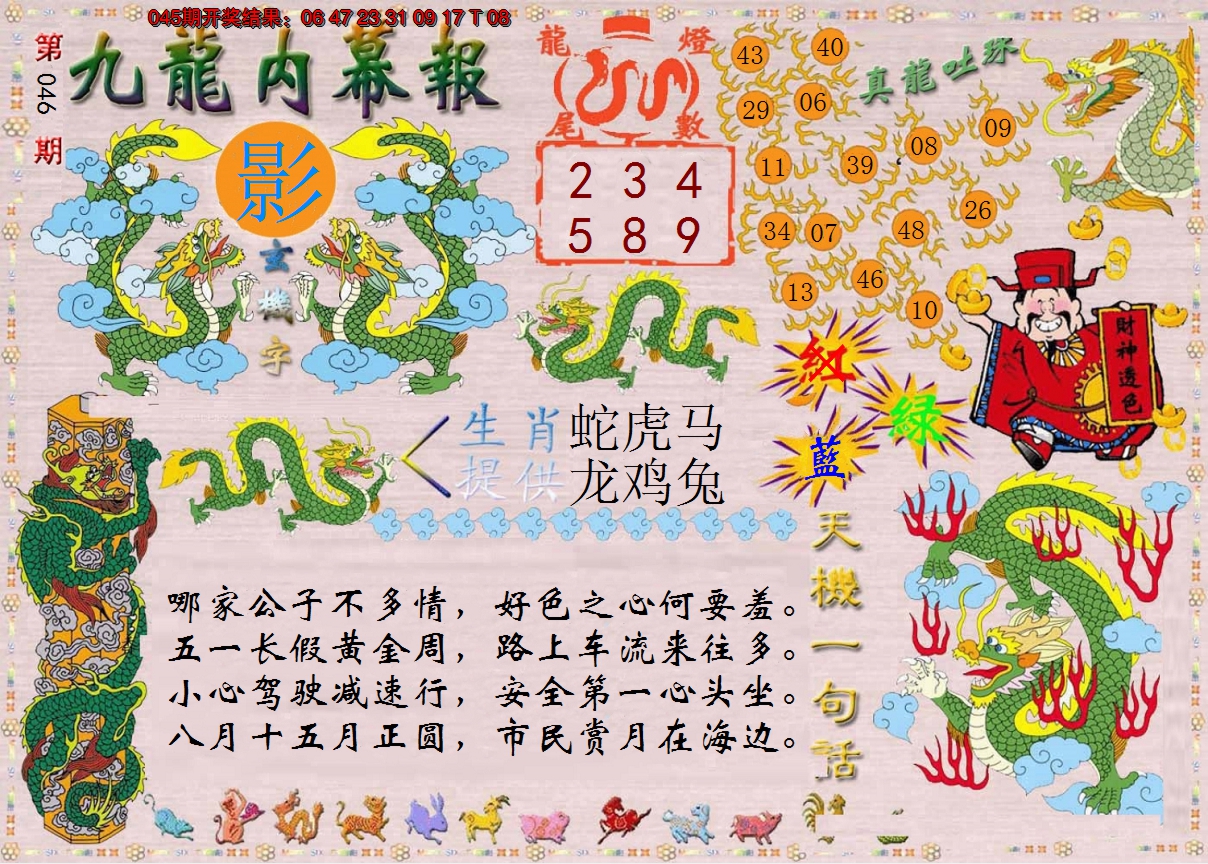 045期开奖结果：06 47 23 31 09 17 T 08
第
046
期
九龍内幕報
影
玄
機
字
龍
燈
尾
數
2 3 4
5 8 9
真龍吐珠
43
40
29
06
11
39
08
09
34
07
48
26
13
46
10
財神透色
紅
綠
藍
生肖
提供
蛇虎马
龙鸡兔
天機一句話
哪家公子不多情，好色之心何要羞。
五一长假黄金周，路上车流来往多。
小心驾驶减速行，安全第一心头坐。
八月十五月正圆，市民赏月在海边。